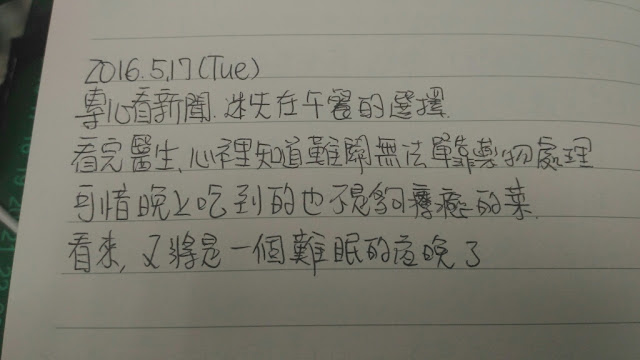 2016.5.17(Tue)
專心看新聞.迷失在午餐的選擇.
看完醫生,心裡知道難關無法單靠藥物處理
可惜晚上吃到的也不是夠療癒的菜.
看來,又將是一個難眠的夜晚了